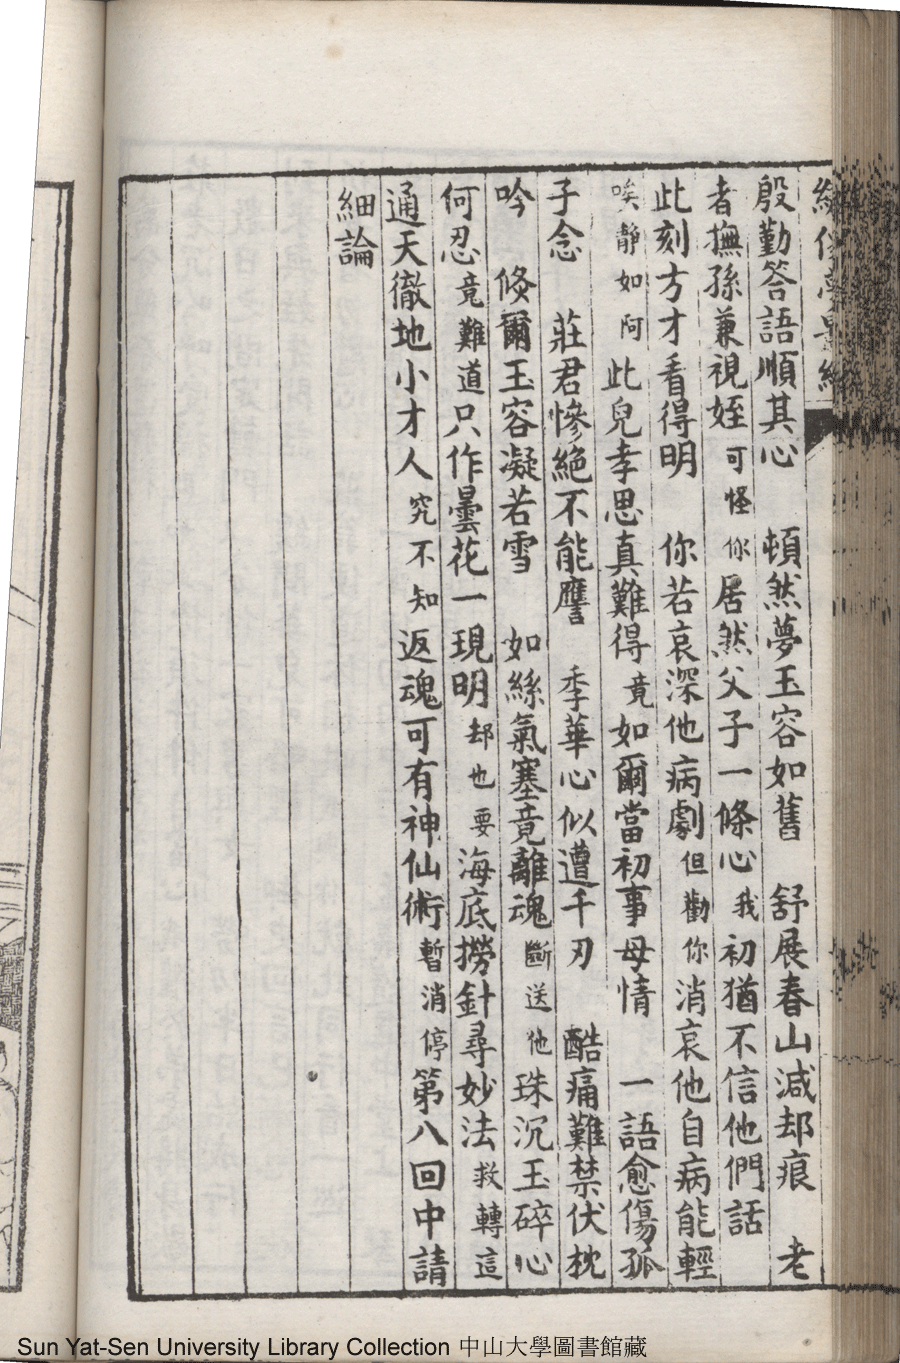 繡像夢影緣
殷勤答語順其心　頓然夢玉容如舊　舒展春山減却痕　老
者撫孫兼視姪可怪你居然父子一條心我初猶不信他們話
此刻方才看得明　你若哀深他病劇但勸你消哀他自病能輕
唉靜如阿此兒孝思真難得竟如爾當初事母情　一語愈傷孤
子念　莊君慘絕不能譍　季華心似遭千刃　酷痛難禁伏枕
吟　倏爾玉容凝若雪　如絲氣塞竟離魂斷送他珠沉玉碎心
何忍竟難道只作曇花一現明却也要海底撈針尋妙法救轉這
通天徹地小才人究不知返魂可有神仙術暫消停第八回中請
細論
Sun Yat-Sen University Library Collection 中山大學圖書館藏